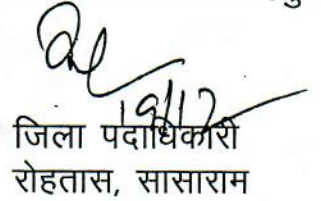 19/12
जिला पदाधिकारी
रोहतास, सासाराम